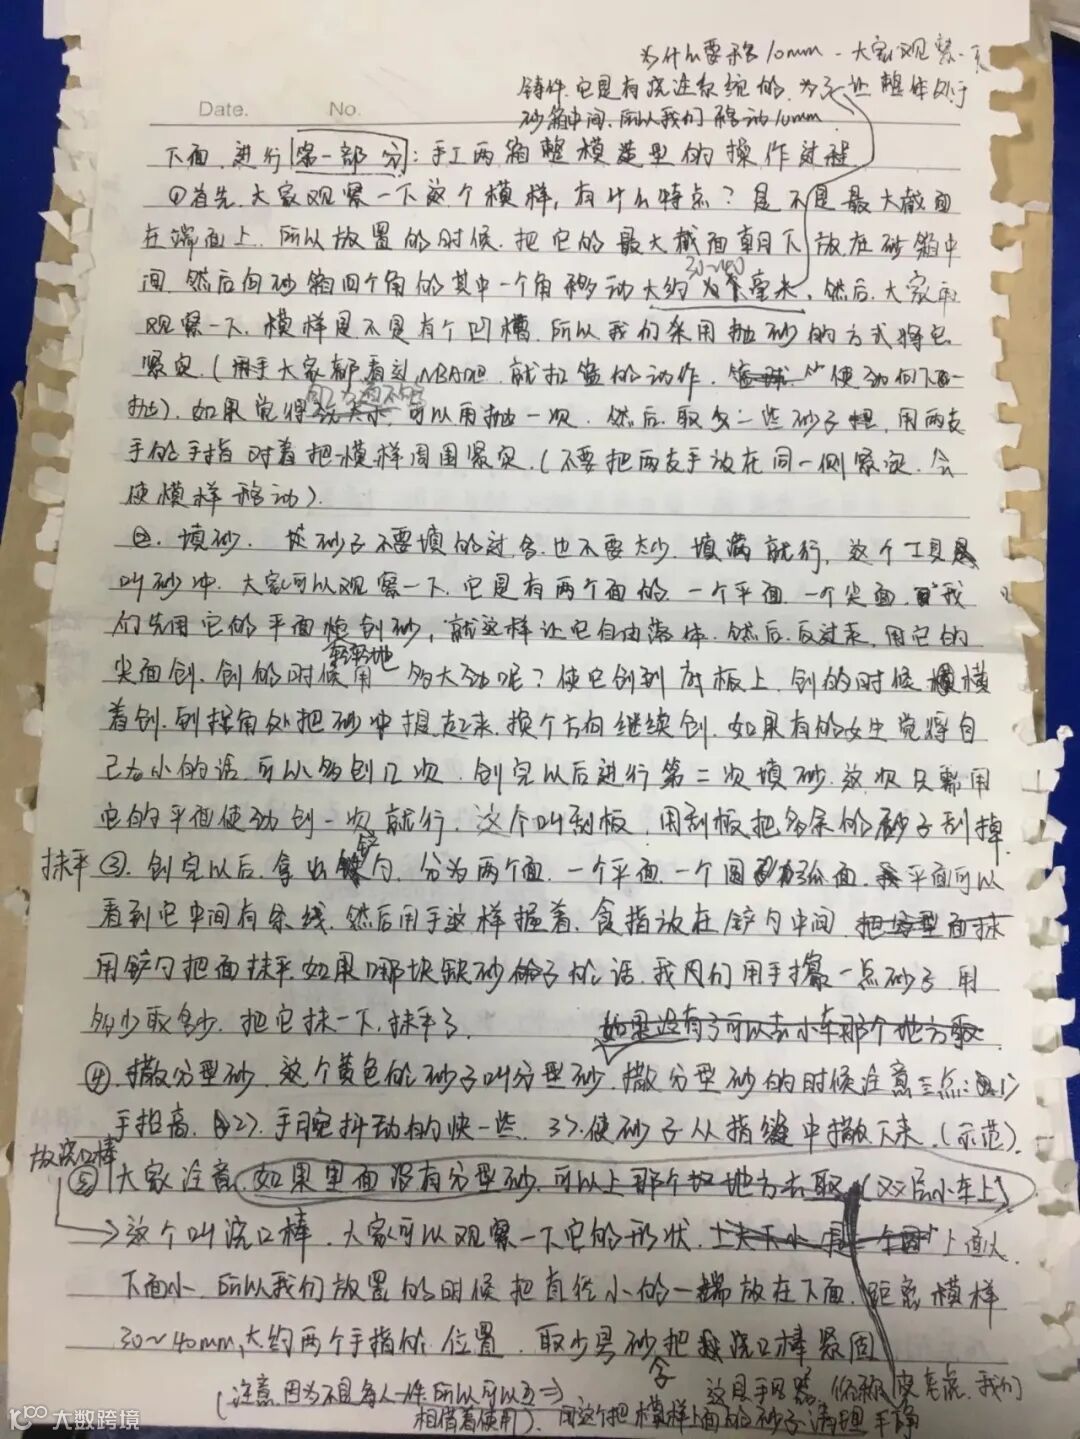 为什么要移10mm - 大家观察一下
铸件.它是有浇注系统的.为了让整体处于
砂箱中间.所以我们移动10mm
Date. No.
下面.进行第一部分:手工两箱整模造型的操作过程
①首先.大家观察一下这个模样,有什么特点?是不是最大截面
在端面上.所以放置的时候.把它的最大截面朝下放在砂箱中
30~40
间.然后向砂箱四个角的其中一个角移动大约为毫米.然后.大家再
观察一下.模样是不是有个凹槽.所以我们采用抛砂的方式将它
紧实.(用手大家都看过NBA吧.就扣篮的动作.使劲向下一
抛).如果觉得可以再抛一次.然后.取多一些砂子.用两支
手的手指对着把模样周围紧实.(不要把两支手放在同一侧紧实.会
使模样移动).
②.填砂.砂子不要填的过多.也不要太少.填满就行.这个工具
叫砂冲.大家可以观察一下.它是有两个面的.一个平面.一个尖面.我
们先用它的平面刨砂,就这样让它自由落体.然后.反过来.用它的
轻轻地
尖面刨.刨的时候用多大劲呢?使它刨到底板上.刨的时候横
着刨.到拐角处把砂冲提起来.换个方向继续刨.如果有的女生觉得自
己力小的话.可以多刨几次.刨完以后进行第二次填砂.这次只需用
它的平面使劲刨一次就行.这个叫刮板.用刮板把多余的砂子刮掉
抹平 ③.刨完以后.拿出铲勺.分为两个面.一个平面.一个圆弧面.平面可以
看到它中间有条线.然后用手这样握着.食指放在铲勺中间.把分型面抹
用铲勺把面抹平.如果哪块缺砂子的话.我们用手撮一点砂子.用
多少取多少.把它抹一下.抹平了.
如果没有了可以去小车那个地方取
④.撒分型砂.这个黄色的砂子叫分型砂.撒分型砂的时候注意三点:1>
手抬高.2>.手腕抖动的快一些.3>.使砂子从指缝中撒下来.(示范).
放浇口棒
⑤大家注意.如果里面没有分型砂.可以上那个地方去取(双层小车上)
→这个叫浇口棒.大家可以观察一下它的形状.上面大
下面小.所以我们放置的时候把直径小的一端放在下面.距离模样
30~40mm,大约两个手指的位置.取少量砂把浇口棒紧固
(注意.因为不是每人一件.所以可以
相借着使用).用这个把模样上面的砂子清理干净
这是手风器.俗称皮老虎.我们